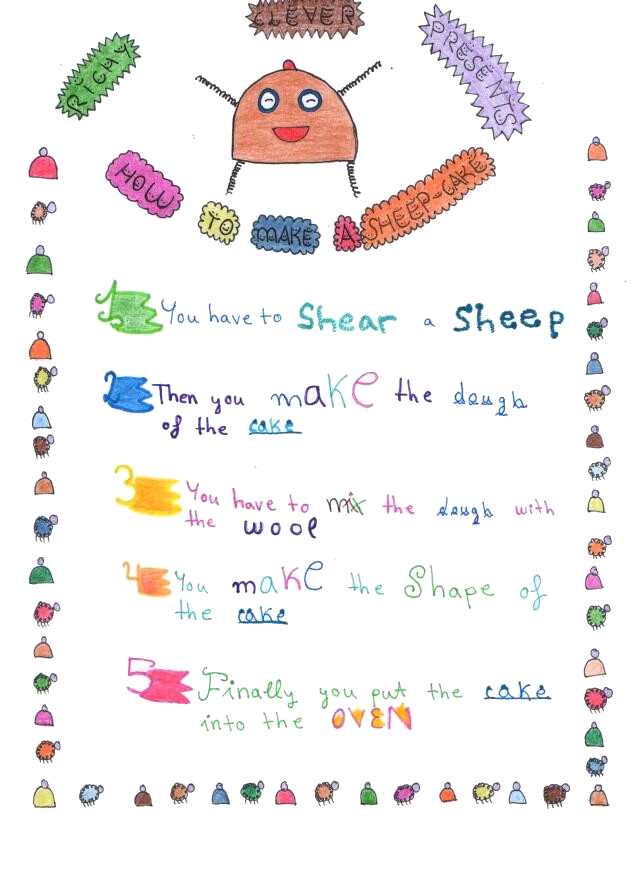 RICHY CLEVER PRESENTS
HOW TO MAKE A SHEEP-CAKE
1 You have to Shear a Sheep
2 Then you make the dough
of the cake
3 You have to mix the dough with
the wool
4 You make the Shape of
the cake
5 Finally you put the cake
into the OVEN